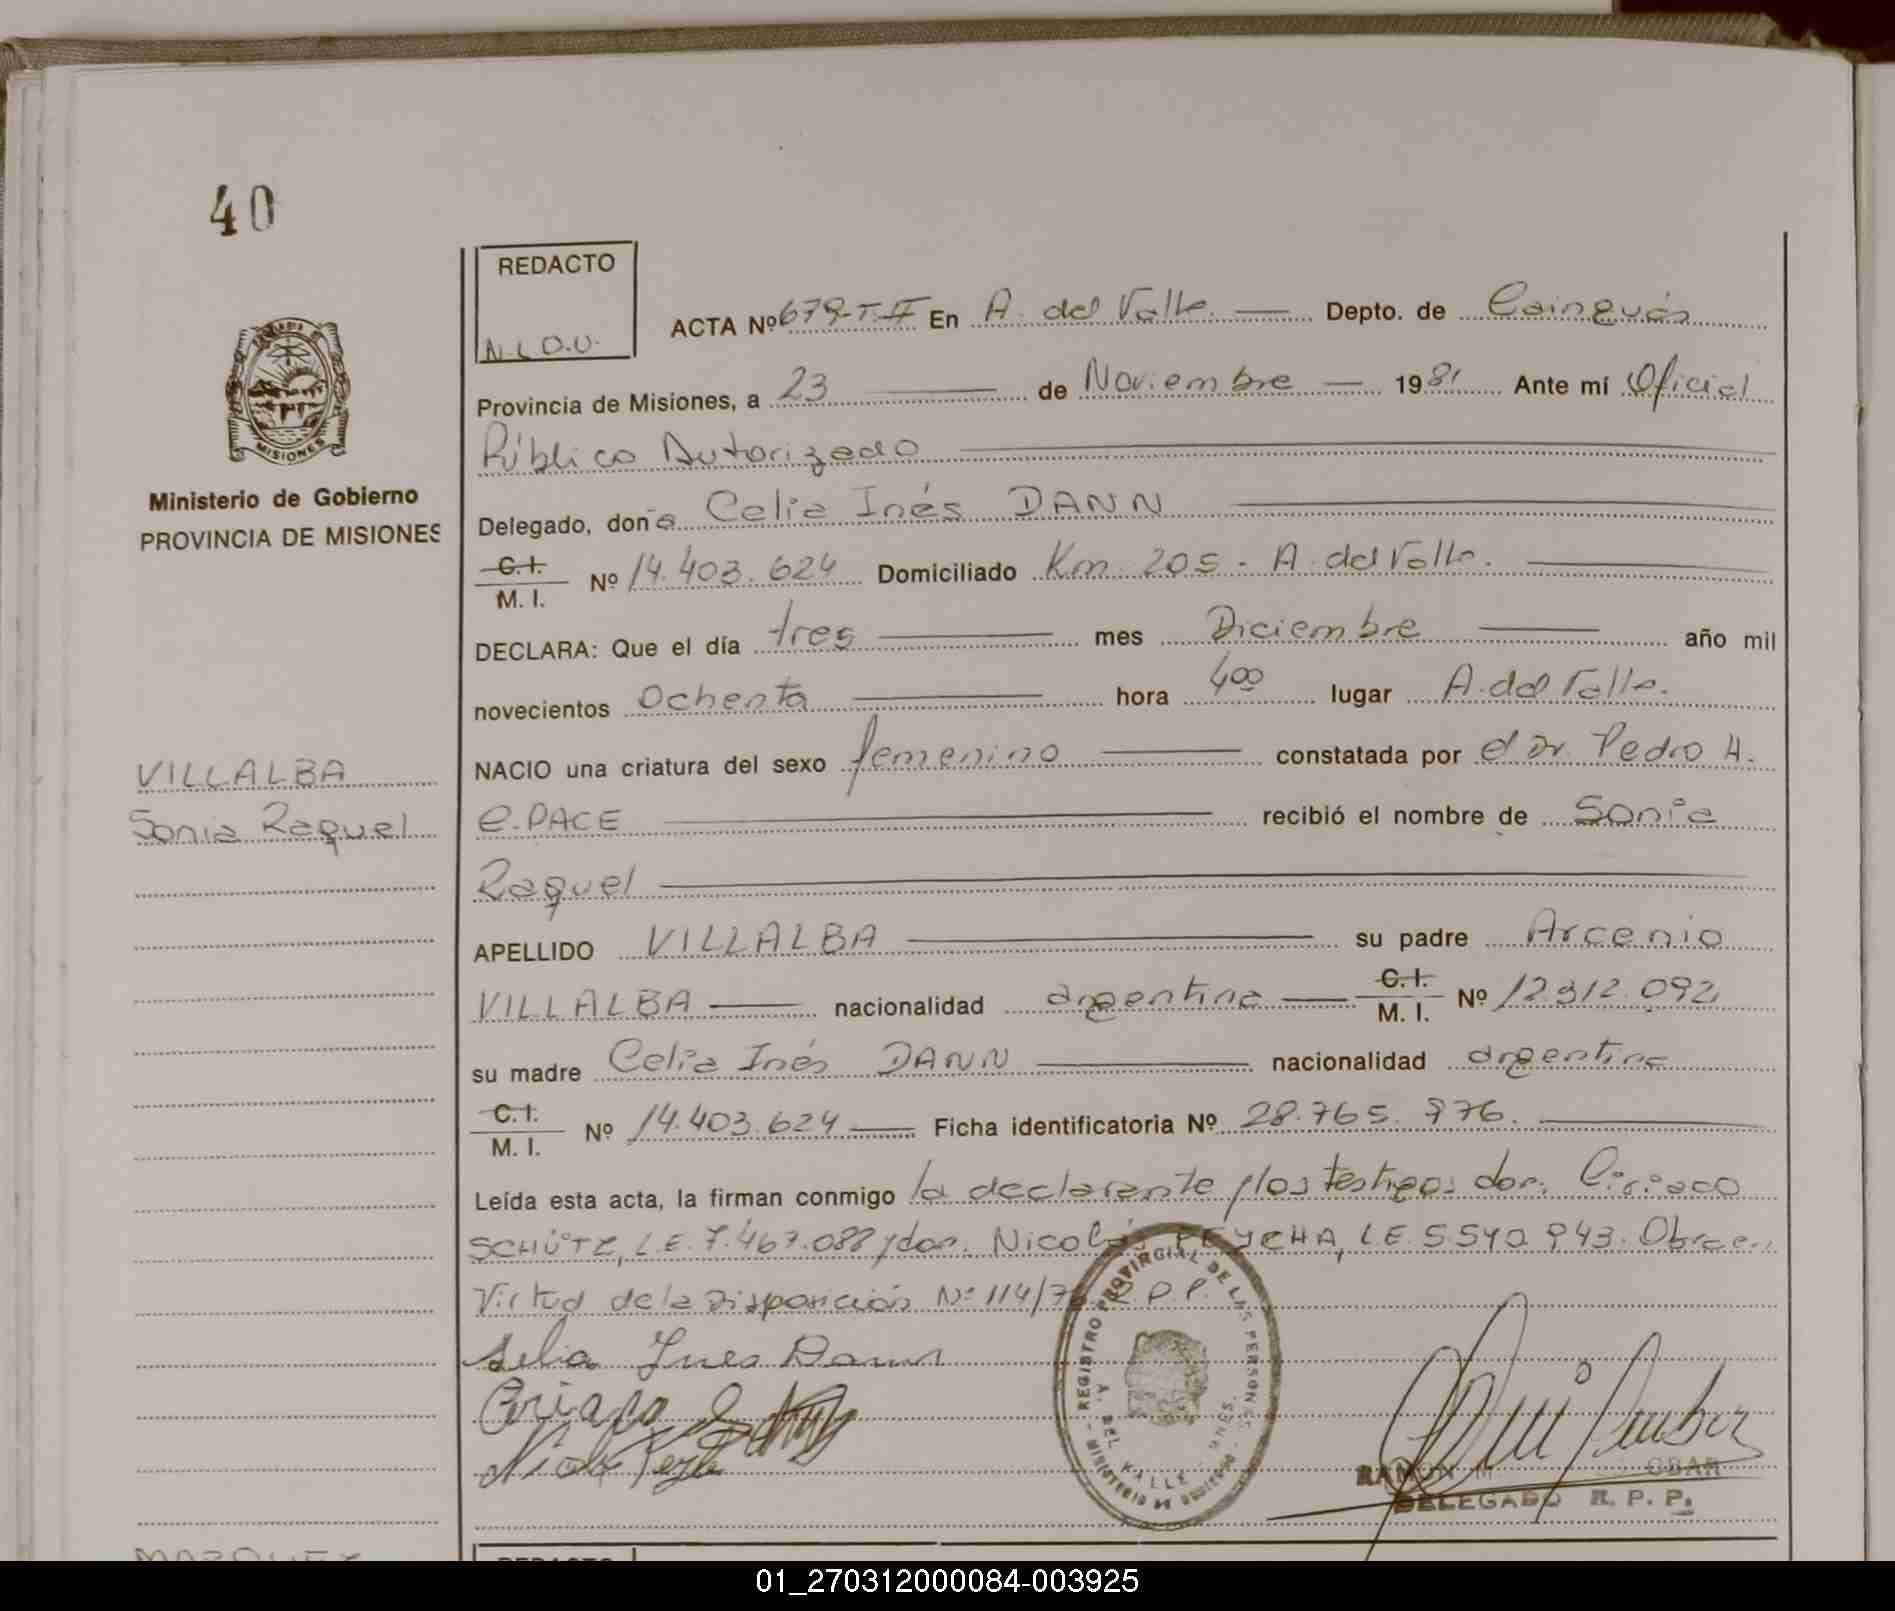 40
REDACTO
N.L.O.U.
ACTA Nº 679-T.II En A. del Valle. Depto. de Cainguás
Provincia de Misiones, a 23 de Noviembre 1981 Ante mí Oficial
Público Autorizado
Ministerio de Gobierno
PROVINCIA DE MISIONES
Delegado, doña Celia Inés DANN
C.I.
M. I. Nº 14.403.624 Domiciliado Km. 205 - A. del Valle.
DECLARA: Que el día tres mes Diciembre año mil
novecientos Ochenta hora 4oo lugar A. del Valle.
NACIO una criatura del sexo femenino constatada por el Dr. Pedro H.
VILLALBA
Sonia Raquel
e. PACE recibió el nombre de Sonia
Raquel
APELLIDO VILLALBA su padre Arcenio
VILLALBA nacionalidad argentina C.I.
M. I. Nº 12.312.092
su madre Celia Inés DANN nacionalidad argentina
C.I.
M. I. Nº 14.403.624 Ficha identificatoria Nº 28.765.976.
Leída esta acta, la firman conmigo la declarante y los testigos don. Ciriaco
SCHÜTZ, L.E. 7.467.088 y don. Nicolás PEYCHA, L.E. 5.540.943. Obra en
Virtud de la Disposición Nº 114/ R.P.P.
Selia Ines Dann
REGISTRO PROVINCIAL DE LAS PERSONAS
MINISTERIO DE GOBIERNO
DEL VALLE - MNES.
RAMON
OBAR
DELEGADO R. P. P.
REDACTO
01_270312000084-003925